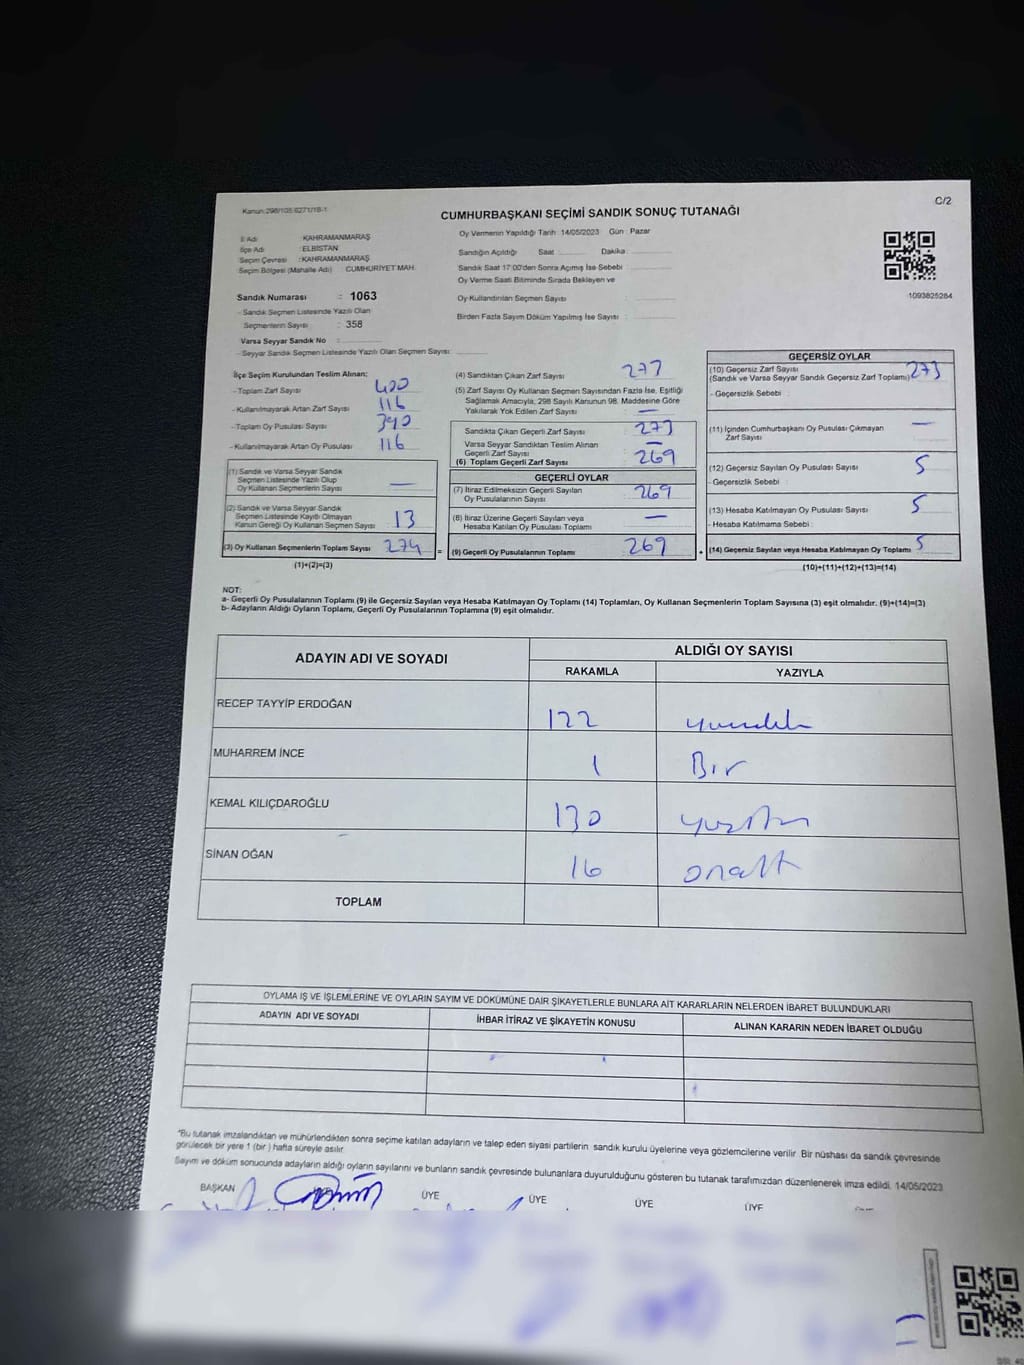 Kanun:298/105.6271/18-1
C/2
CUMHURBAŞKANI SEÇİMİ SANDIK SONUÇ TUTANAĞI
İl Adı : KAHRAMANMARAŞ
İlçe Adı : ELBİSTAN
Seçim Çevresi : KAHRAMANMARAŞ
Seçim Bölgesi (Mahalle Adı) CUMHURİYET MAH.
Oy Vermenin Yapıldığı Tarih :14/05/2023 Gün : Pazar
Sandığın Açıldığı Saat : Dakika :
Sandık Saat 17:00'den Sonra Açımış İse Sebebi :
Oy Verme Saati Bitiminde Sırada Bekleyen ve
Oy Kullandırılan Seçmen Sayısı :
Birden Fazla Sayım Döküm Yapılmış İse Sayısı :
1093825284
Sandık Numarası : 1063
- Sandık Seçmen Listesinde Yazılı Olan
Seçmenlerin Sayısı : 358
Varsa Seyyar Sandık No :
- Seyyar Sandık Seçmen Listesinde Yazılı Olan Seçmen Sayısı:
İlçe Seçim Kurulundan Teslim Alınan:
- Toplam Zarf Sayısı 400
- Kullanılmayarak Artan Zarf Sayısı 116
- Toplam Oy Pusulası Sayısı 390
- Kullanılmayarak Artan Oy Pusulası 116
(1) Sandık ve Varsa Seyyar Sandık
Seçmen Listesinde Yazılı Olup
Oy Kullanan Seçmenlerin Sayısı —
(2) Sandık ve Varsa Seyyar Sandık
Seçmen Listesinde Kayıtlı Olmayan
Kanun Gereği Oy Kullanan Seçmen Sayısı 13
(3) Oy Kullanan Seçmenlerin Toplam Sayısı 274 =
(1)+(2)=(3)
(4) Sandıktan Çıkan Zarf Sayısı 277
(5) Zarf Sayısı Oy Kullanan Seçmen Sayısından Fazla İse, Eşitliği
Sağlamak Amacıyla, 298 Sayılı Kanunun 98. Maddesine Göre
Yakılarak Yok Edilen Zarf Sayısı —
Sandıkta Çıkan Geçerli Zarf Sayısı 273
Varsa Seyyar Sandıktan Teslim Alınan
Geçerli Zarf Sayısı —
(6) Toplam Geçerli Zarf Sayısı 269
GEÇERLİ OYLAR
(7) İtiraz Edilmeksizin Geçerli Sayılan
Oy Pusulalarının Sayısı 269
(8) İtiraz Üzerine Geçerli Sayılan veya
Hesaba Katılan Oy Pusulası Toplamı —
(9) Geçerli Oy Pusulalarının Toplamı 269 +
GEÇERSİZ OYLAR
(10) Geçersiz Zarf Sayısı
(Sandık ve Varsa Seyyar Sandık Geçersiz Zarf Toplamı) 273
- Geçersizlik Sebebi :
(11) İçinden Cumhurbaşkanı Oy Pusulası Çıkmayan
Zarf Sayısı —
(12) Geçersiz Sayılan Oy Pusulası Sayısı 5
- Geçersizlik Sebebi :
(13) Hesaba Katılmayan Oy Pusulası Sayısı 5
- Hesaba Katılmama Sebebi :
(14) Geçersiz Sayılan veya Hesaba Katılmayan Oy Toplamı 5
(10)+(11)+(12)+(13)=(14)
NOT:
a- Geçerli Oy Pusulalarının Toplamı (9) ile Geçersiz Sayılan veya Hesaba Katılmayan Oy Toplamı (14) Toplamları, Oy Kullanan Seçmenlerin Toplam Sayısına (3) eşit olmalıdır. (9)+(14)=(3)
b- Adayların Aldığı Oyların Toplamı, Geçerli Oy Pusulalarının Toplamına (9) eşit olmalıdır.
ADAYIN ADI VE SOYADI
ALDIĞI OY SAYISI
RAKAMLA YAZIYLA
RECEP TAYYİP ERDOĞAN 122
MUHARREM İNCE 1 Bır
KEMAL KILIÇDAROĞLU 130
SİNAN OĞAN 16 onaltı
TOPLAM
OYLAMA İŞ VE İŞLEMLERİNE VE OYLARIN SAYIM VE DÖKÜMÜNE DAİR ŞİKAYETLERLE BUNLARA AİT KARARLARIN NELERDEN İBARET BULUNDUKLARI
ADAYIN ADI VE SOYADI İHBAR İTİRAZ VE ŞİKAYETİN KONUSU ALINAN KARARIN NEDEN İBARET OLDUĞU
*Bu tutanak imzalandıktan ve mühürlendikten sonra seçime katılan adayların ve talep eden siyasi partilerin sandık kurulu üyelerine veya gözlemcilerine verilir. Bir nüshası da sandık çevresinde
görülecek bir yere 1 (bir ) hafta süreyle asılır.
Sayım ve döküm sonucunda adayların aldığı oyların sayılarını ve bunların sandık çevresinde bulunanlara duyurulduğunu gösteren bu tutanak tarafımızdan düzenlenerek imza edildi. 14/05/2023
BAŞKAN ÜYE ÜYE ÜYE ÜYE